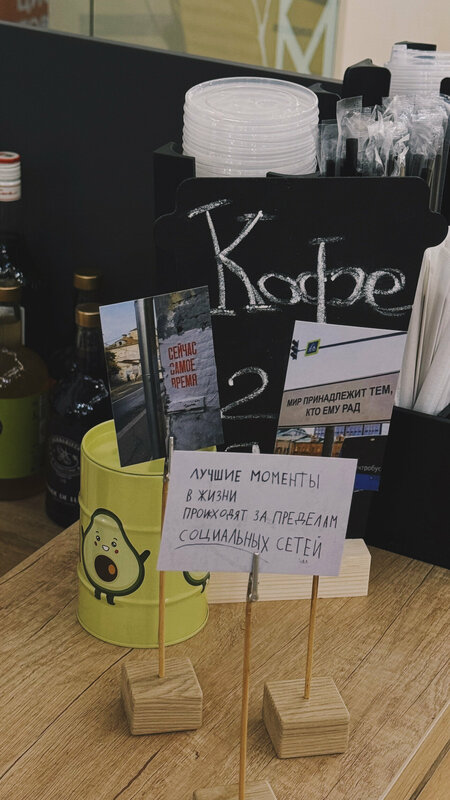 Кофе
2
СЕЙЧАС
САМОЕ
ВРЕМЯ
МИР ПРИНАДЛЕЖИТ ТЕМ,
КТО ЕМУ РАД
ЛУЧШИЕ МОМЕНТЫ
В ЖИЗНИ
ПРОИСХОДЯТ ЗА ПРЕДЕЛАМ
СОЦИАЛЬНЫХ СЕТЕЙ